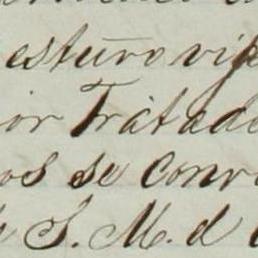 esturo vig
ior Tratado
os se conv
S. M. d